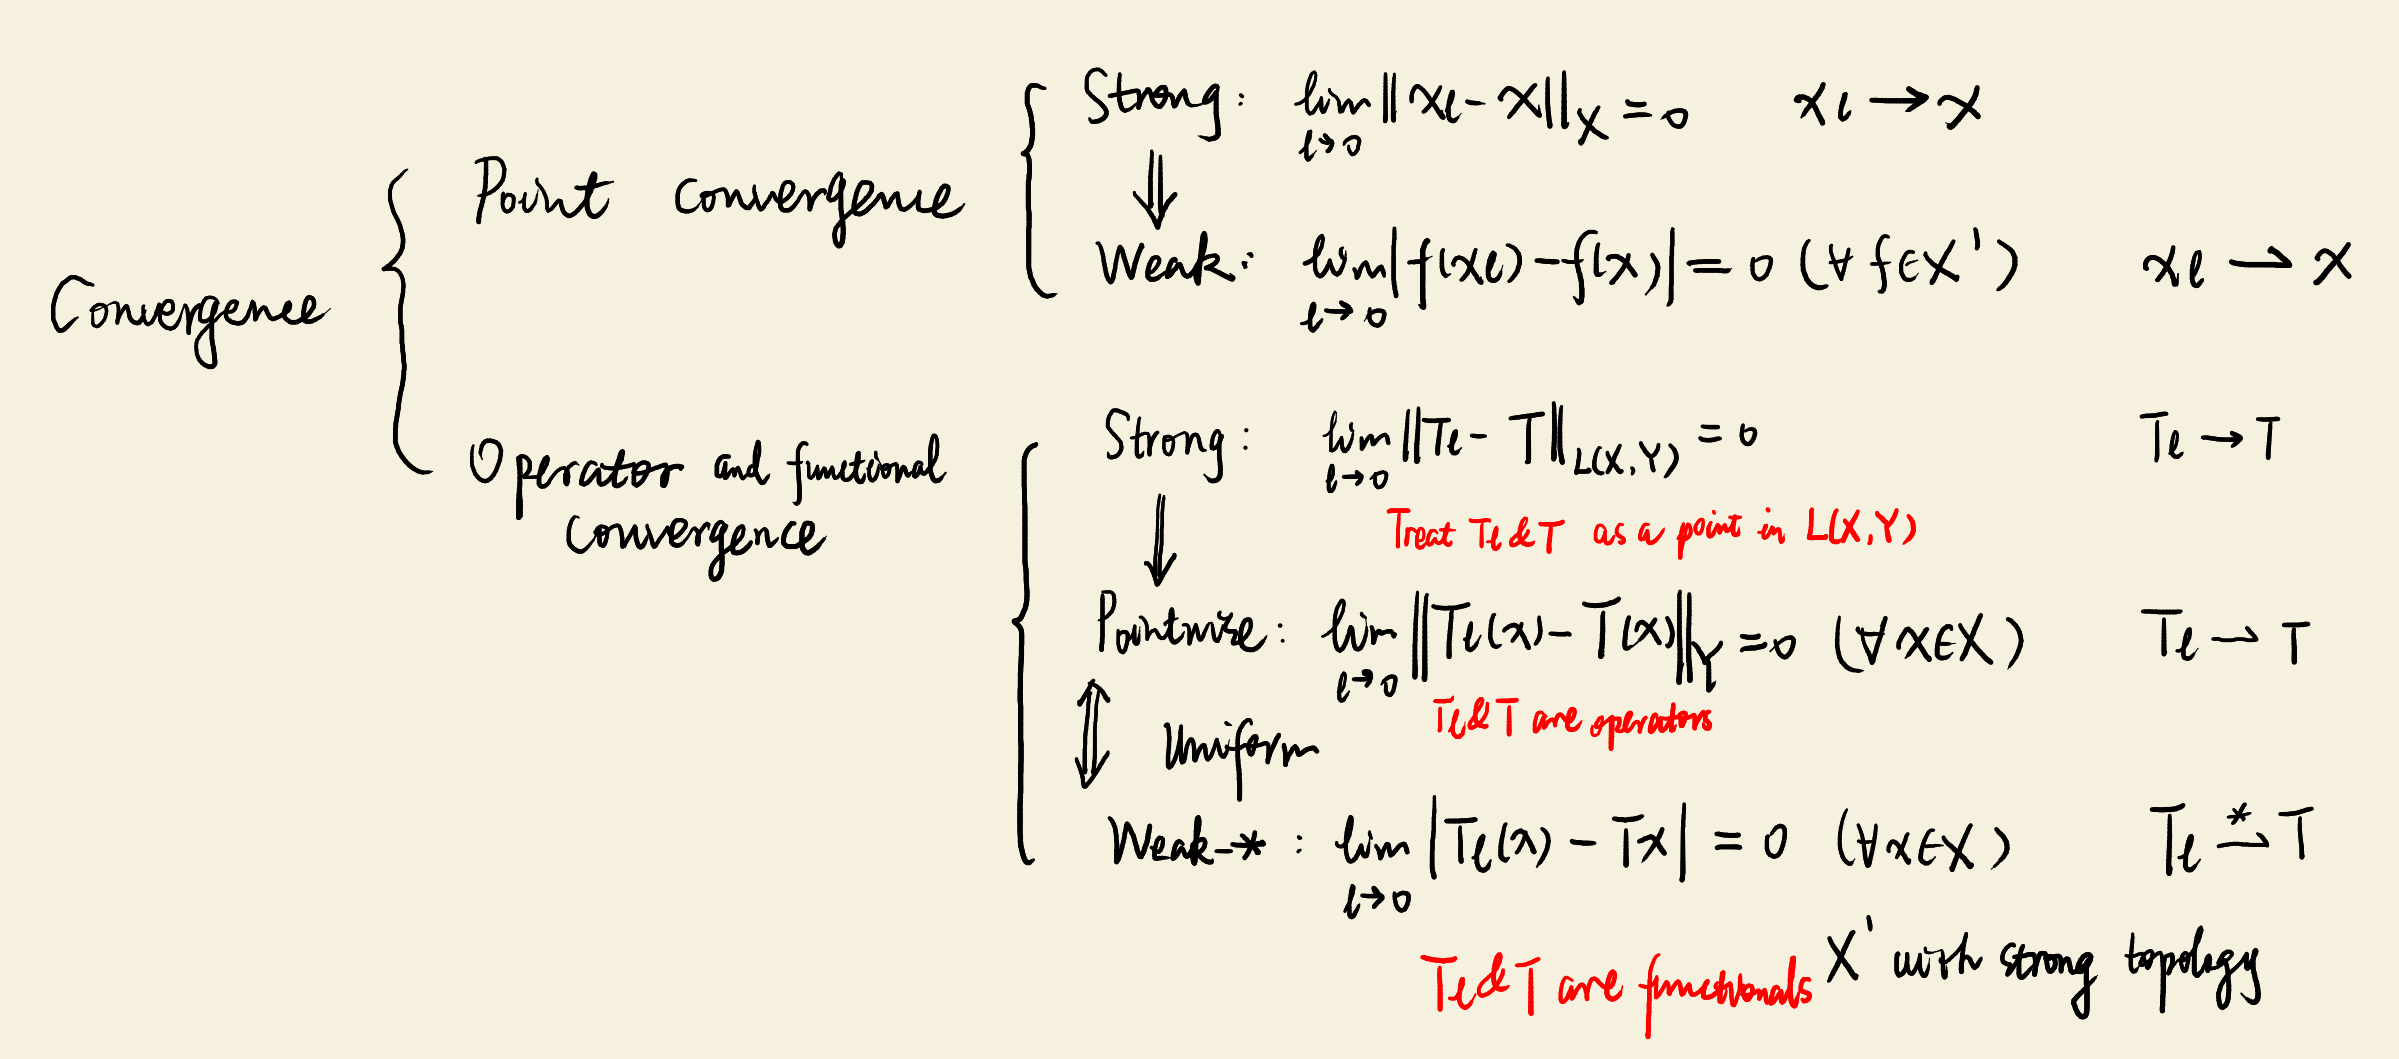 Convergence
Point convergence
Strong: lim ‖xℓ - x‖_X = 0 xℓ → x
ℓ→0
⇓
Weak: lim |f(xℓ) - f(x)| = 0 (∀ f ∈ X') xℓ ⇀ x
ℓ→0
Operator and functional
convergence
Strong: lim ‖Tℓ - T‖_L(X,Y) = 0 Tℓ → T
ℓ→0
Treat Tℓ & T as a point in L(X,Y)
⇓
Pointwise: lim ‖Tℓ(x) - T(x)‖_Y = 0 (∀ x ∈ X) Tℓ ⇀ T
ℓ→0
Tℓ & T are operators
⇕ Uniform
Weak-*: lim |Tℓ(x) - Tx| = 0 (∀ x ∈ X) Tℓ ⇀* T
ℓ→0
Tℓ & T are functionals X' with strong topology